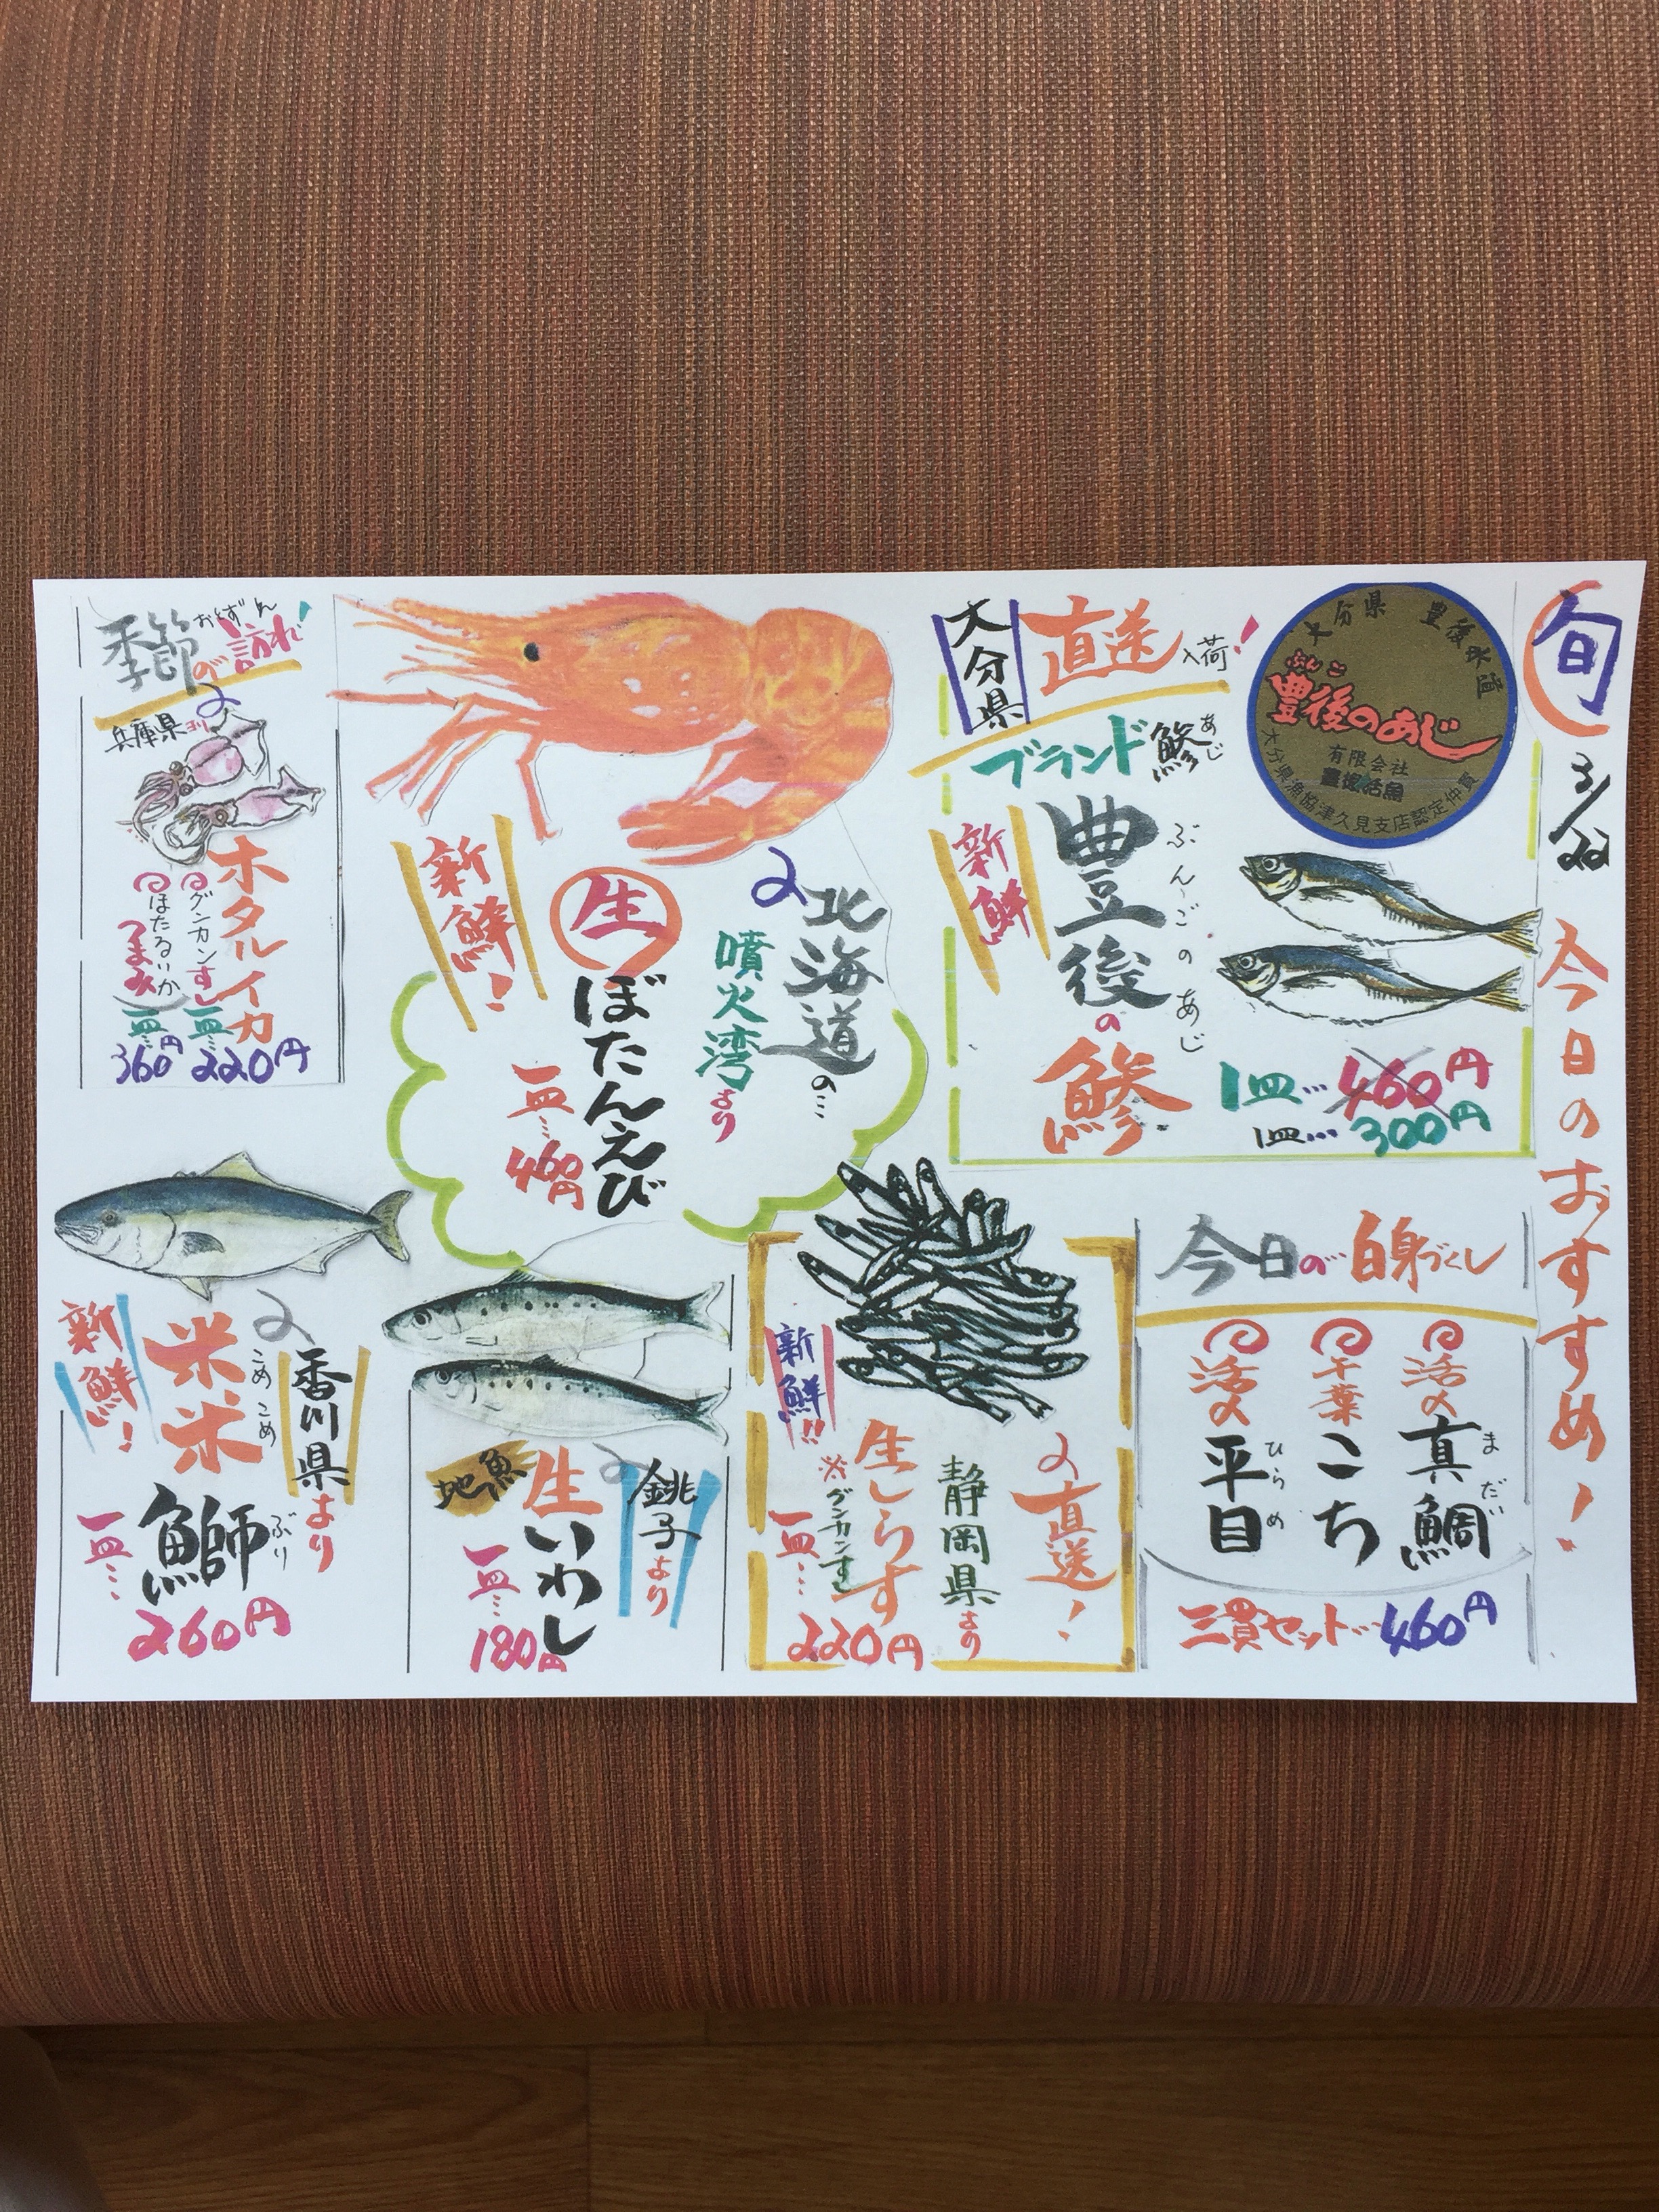 旬
3/22
今日のおすすめ!
大分県 豊後水道
ぶんご
豊後のあじ
有限会社
豊後活魚
大分県漁協津久見支店認定仲買
大分県
直送入荷!
ブランド鯵
あじ
新鮮
豊後の鯵
ぶんごのあじ
1皿…460円
1皿…300円
今日の白身づくし
活〆真鯛
まだい
千葉こち
活〆平目
ひらめ
三貫セット…460円
北海道の…
噴火湾より
生ぼたんえび
新鮮!
一皿…460円
直送!
静岡県より
生しらす
※グンカンすし
新鮮!!
一皿…220円
季節の訪れ!
おとずれ
兵庫県ヨリ
ホタルイカ
グンカンすし
一皿…220円
ほたるいかつまみ
一皿…360円
銚子より
生いわし
地魚
一皿…180円
香川県より
米米鰤
こめこめ
ぶり
新鮮!
一皿…260円